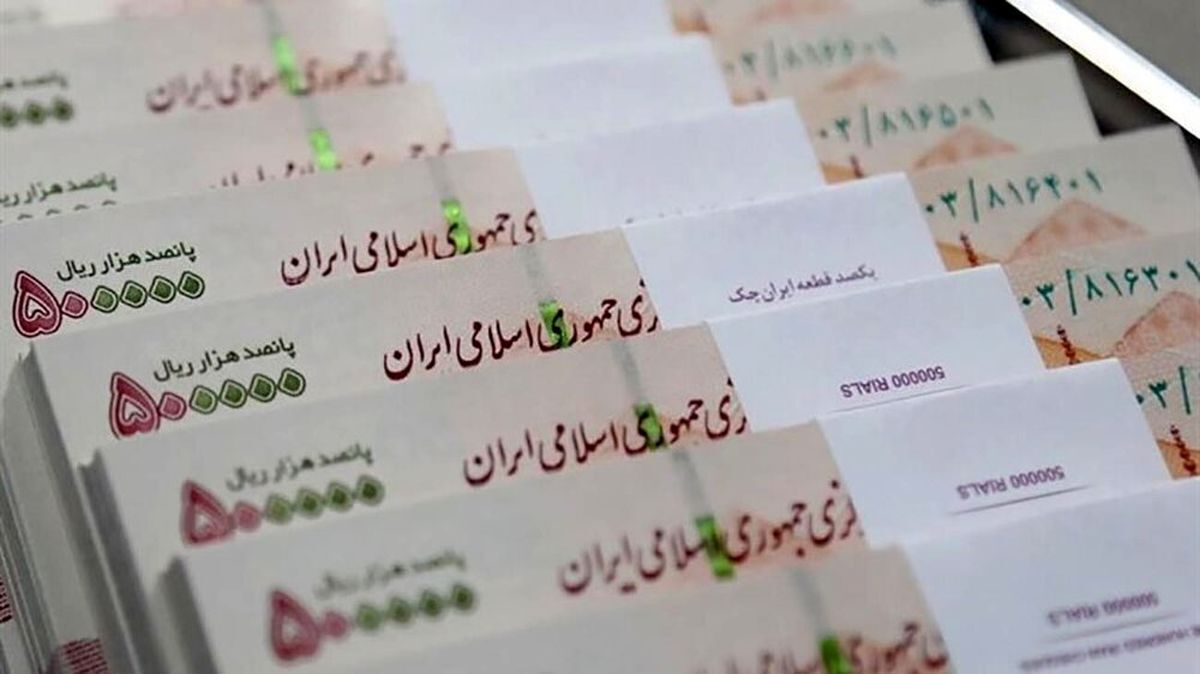 پانصد هزار ریال
جمهوری اسلامی ایران
۰۳/۸۱۶۶۰۱
پانصد هزار ریال
۰۳/۸۱۶۵۰۱
پانصد هزار ریال
۵۰۰۰۰۰
جمهوری اسلامی ایران
۰۳/۸۱۶۴۰۱
پانصد هزار ریال
۵۰۰۰۰۰
جمهوری اسلامی ایران
یکصد قطعه ایران چک
۰۳/۸۱۶۳۰۱
پانصد هزار ریال
۵۰۰۰۰۰
جمهوری اسلامی ایران
500000 RIALS
۰۳/
پانصد هزار ریال
۵۰۰۰۰۰
جمهوری اسلامی ایران
500000 RIALS
500000 RIALS